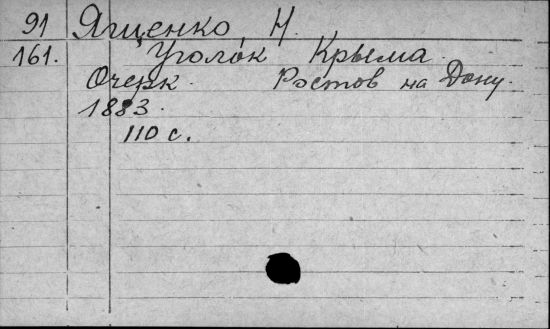 91 Ященко, Н.
161. Уголок Крыма.
Очерк. Ростов на Дону.
1883.
110 с.